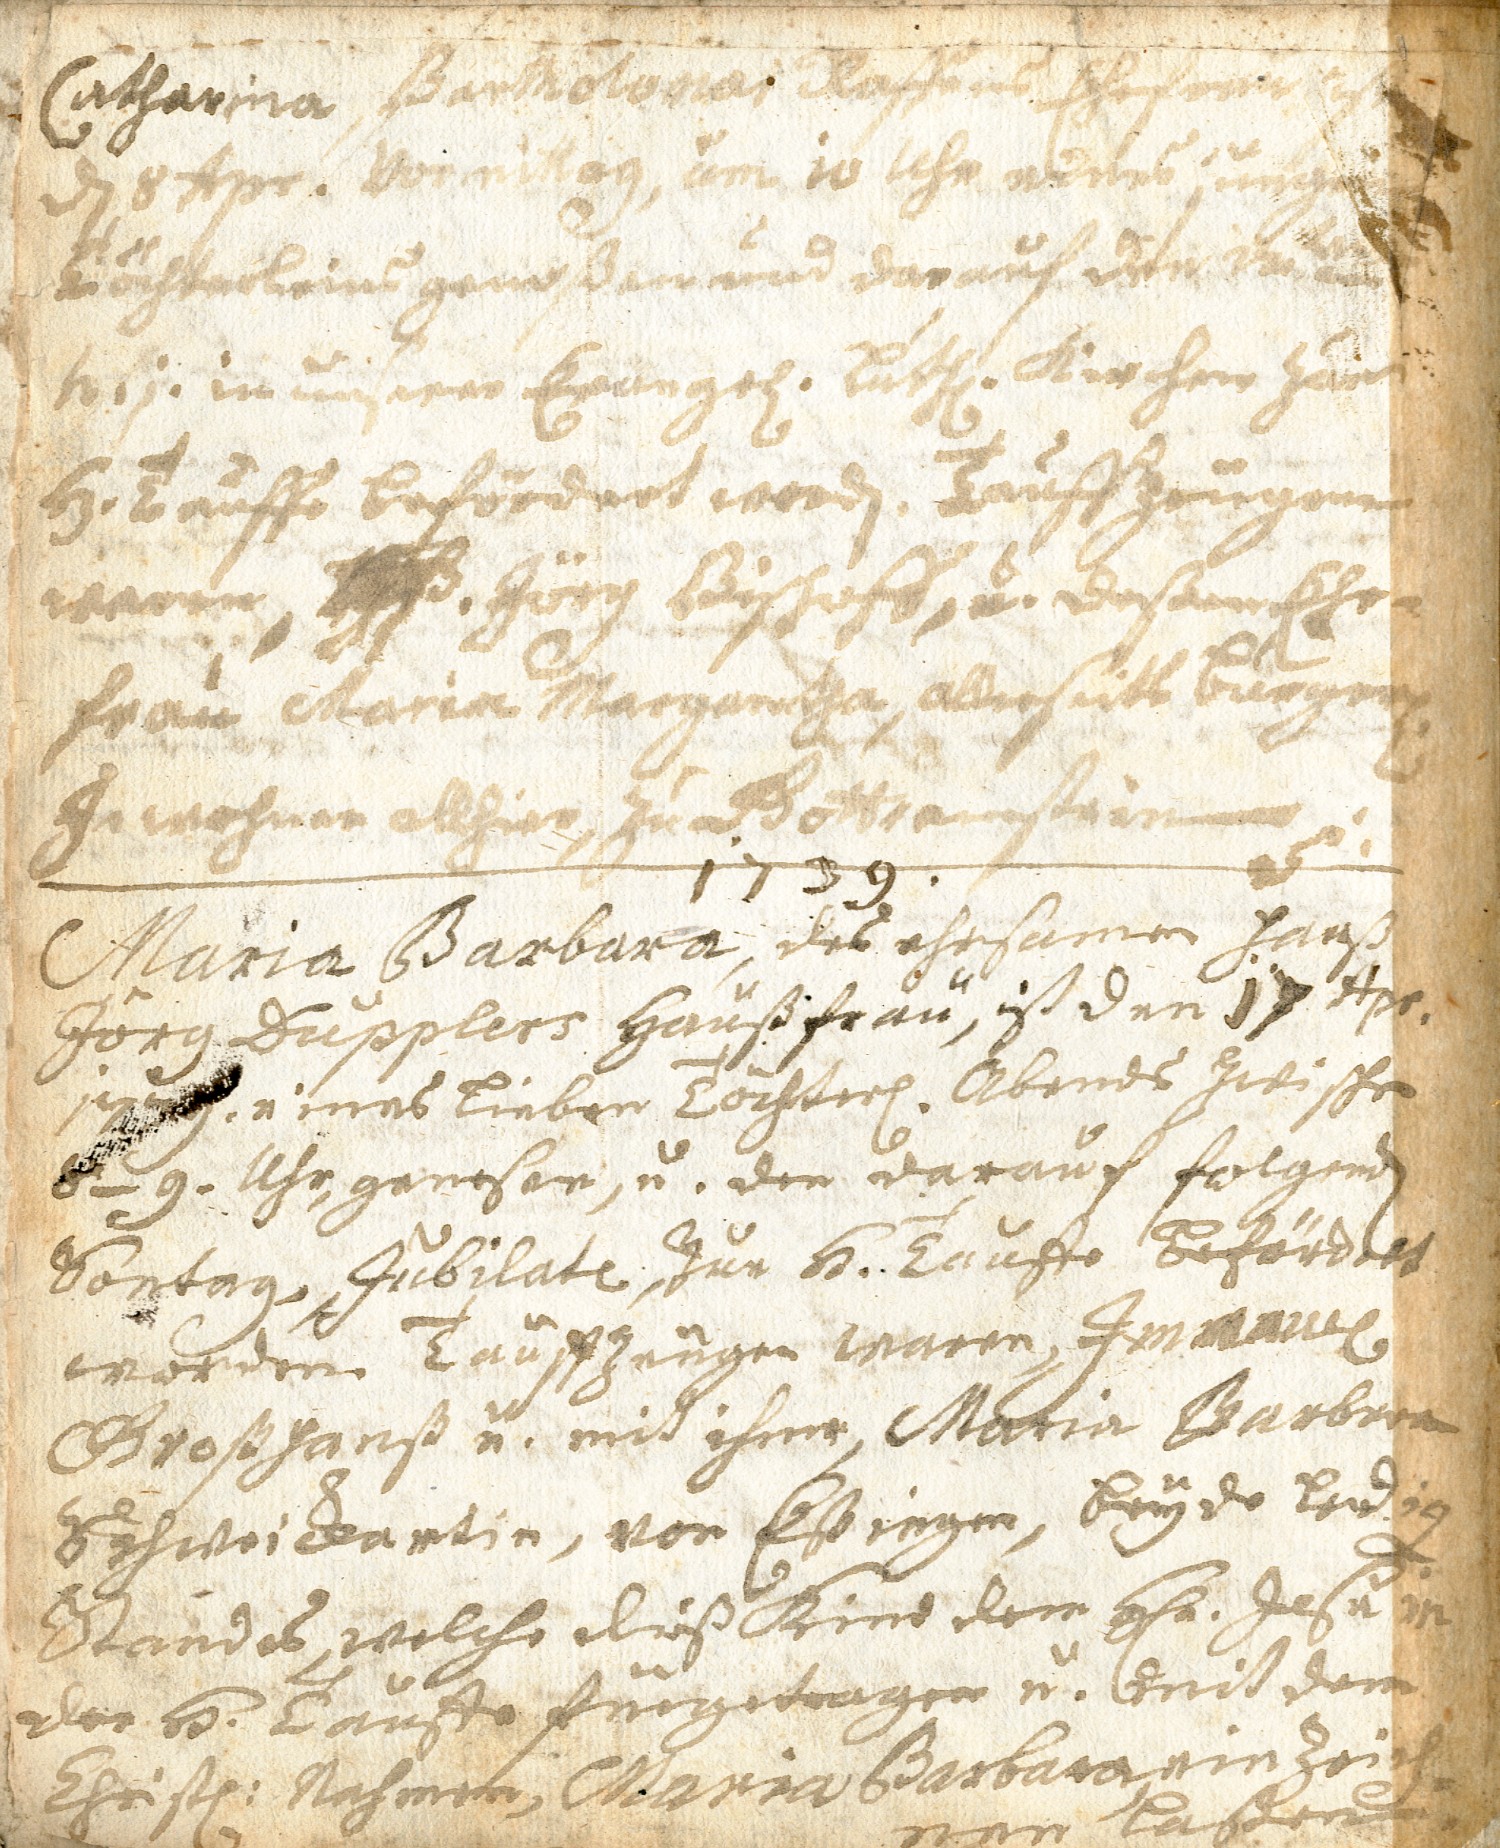 Catharina, Bartholomaei Ehefrau, ist
d. 8 Apr. Vormittag, um 10 Uhr eines jungen
Töchterleins genesen und darauf den
h. j. in unserer Evangel. Luth. Kirchen zur
H. Tauffe befördert word. Tauffzeugen
waren, Jörg Bischoff, u. dessen Ehe-
frau Maria Margaretha, allerseits burgerl.
Inwohner allhier zu Gottramstein
1739.
Maria Barbara, des ehrsamen Hanß
Jörg Dupplers Haußfrau, ist den 17 Apr.
1739. eines lieben Töchterl. Abends zwischen
8–9. Uhr, genesen, u. den darauf folgend
Sontag, Jubilate, zur H. Tauffe befördert
worden. Tauffzeugen waren, Immanuel
Großhanß u. mit ihme, Maria Barbara
von Eßingen, beyde ledig
Standes, welche diß Kind dem Hr. Jesu in
der H. Tauffe fürgetragen u. mit dem
Christl: Nahmen, Maria Barbara, ein Zeich-
nen laßen.